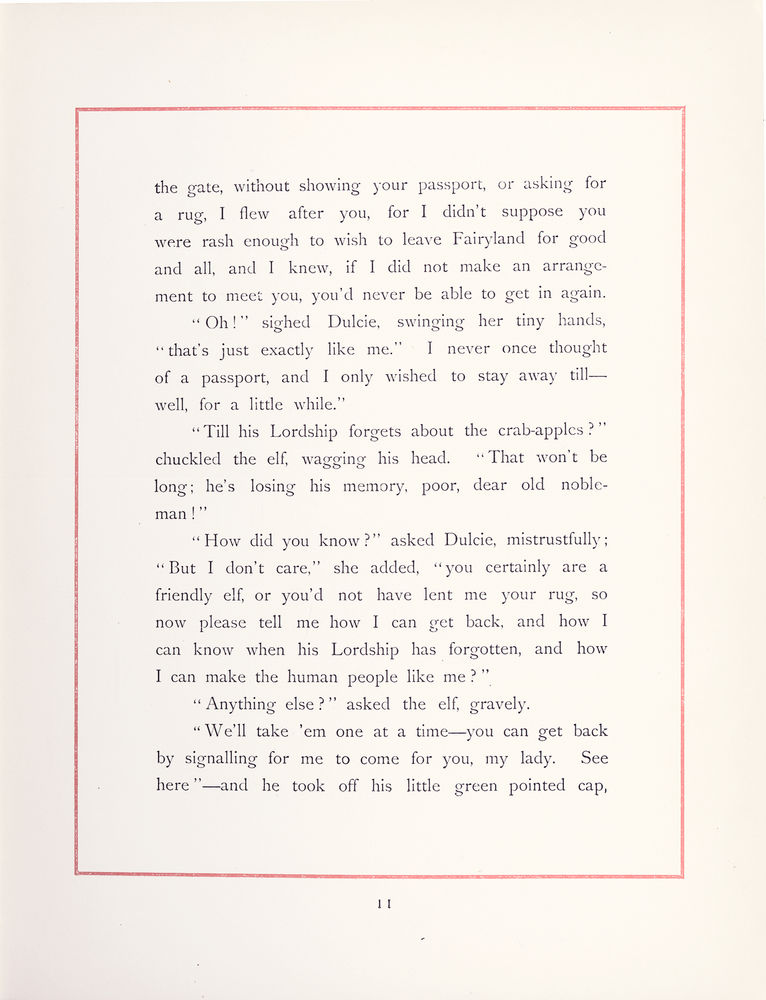 the gate, without showing your passport, or asking for
a rug, I flew after you, for I didn't suppose you
were rash enough to wish to leave Fairyland for good
and all, and I knew, if I did not make an arrange-
ment to meet you, you'd never be able to get in again.
“Oh!” sighed Dulcie, swinging her tiny hands,
“that's just exactly like me.” I never once thought
of a passport, and I only wished to stay away till—
well, for a little while.”
“Till his Lordship forgets about the crab-apples?”
chuckled the elf, wagging his head. “That won't be
long; he's losing his memory, poor, dear old noble-
man!”
“How did you know?” asked Dulcie, mistrustfully;
“But I don't care,” she added, “you certainly are a
friendly elf, or you'd not have lent me your rug, so
now please tell me how I can get back, and how I
can know when his Lordship has forgotten, and how
I can make the human people like me?”
“Anything else?” asked the elf, gravely.
“We'll take 'em one at a time—you can get back
by signalling for me to come for you, my lady. See
here”—and he took off his little green pointed cap,
11